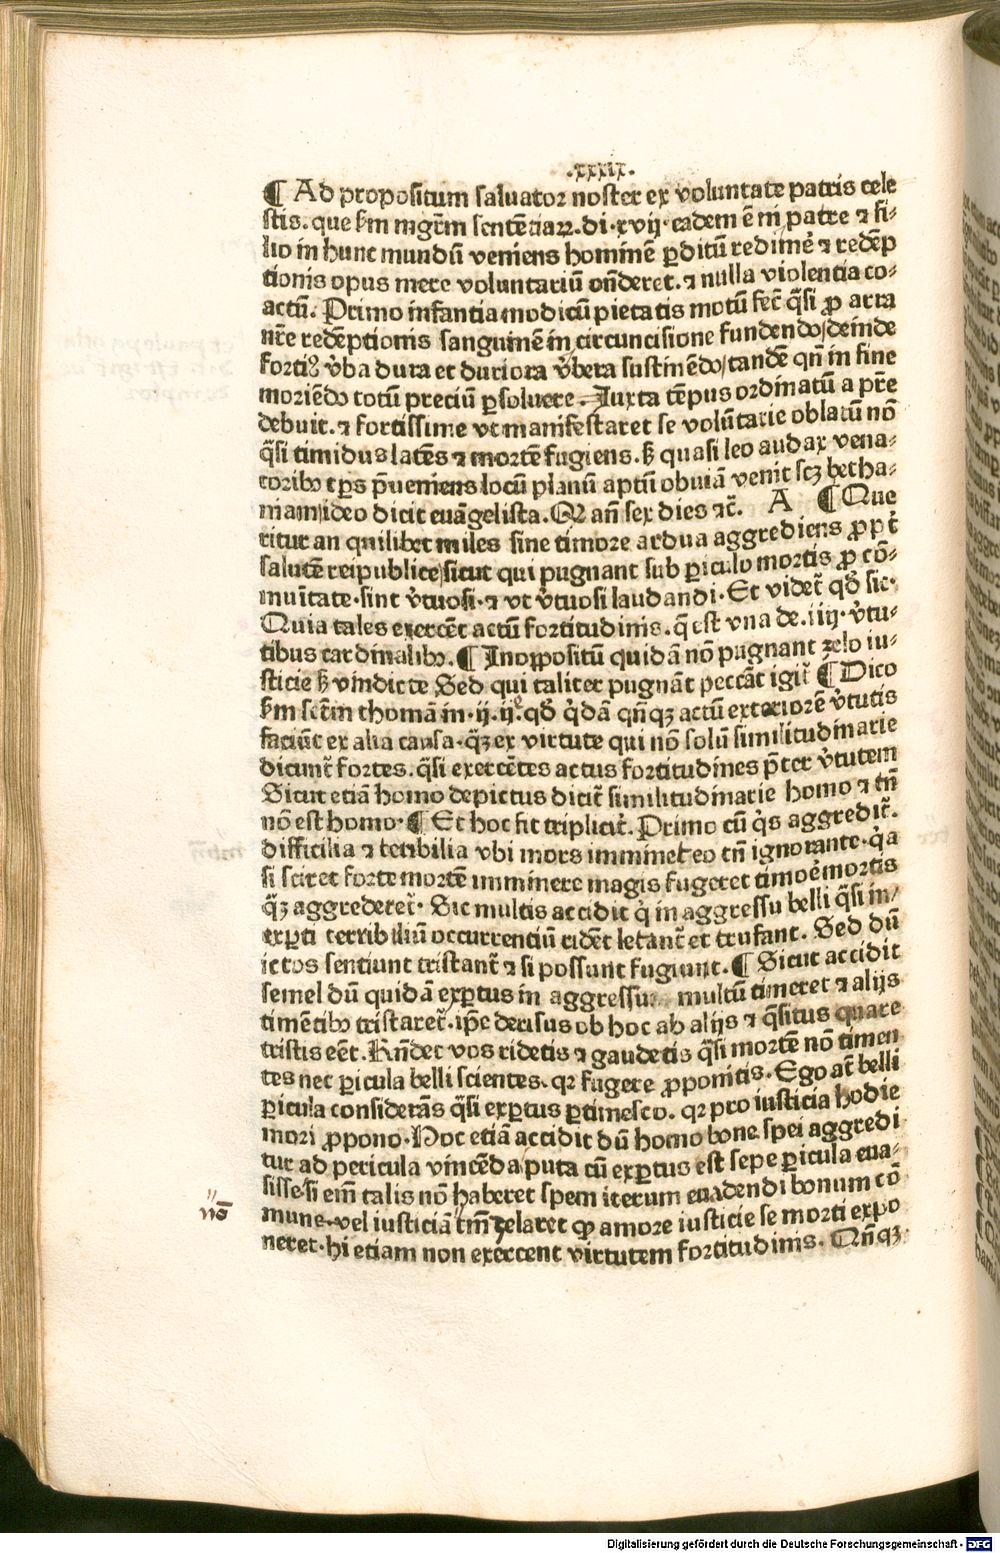 .xxxix.
¶ Ad propositum saluator noster ex voluntate patris cele
stis. que ẜm mgr̄m sentētiaꝝ. di·xvij·eadem ē in patre ⁊ fi-
lio in hunc mundū veniens hominē ꝑditū redimē̉ ⁊ redēp
tionis opus mere voluntariū oñderet. ⁊ nulla violentia co-
actū. Primo infantia modicū pietatis motū fec̄ q̄si ꝓ arra
nr̄e redēptionis sanguinē in circuncisione fundendo/deinde
fortiꝰ v̉ba dura et duriora v̉bera sustinēdo/tandē qn̄ in fine
moriēdo totū preciū ꝑsoluere. Iuxta tēpus ordinatū a pr̄e
debuit. ⁊ fortissime vt manifestaret se volūtarie oblatū nō
q̄si timidus latēs ⁊ mortē fugiens. ẜꝫ quasi leo audax vena-
toribꝰ tꝑs p̄ueniens locū planū aptū obuiā venit scꝫ betha-
niam/ideo dicit euāgelista. Qꝛ an̄ sex dies ⁊c̄. A ¶ Que
ritur an quilibet miles sine timore ardua aggrediens ꝓpt̉
salutē reipublice/sicut qui pugnant sub ꝑiculo mortis ꝓ cō-
muītate·sint v̉tuosi·⁊ vt v̉tuosi laudandi·Et videt̄ qd̄ sic·
Quia tales exercēt actū fortitudinis. q̄ est vna de.iiij·v̉tu-
tibus cardinalibꝰ. ¶ In oꝓpositū quidā nō pugnant zelo iu-
sticie ẜꝫ vindicte Sed qui taliter pugnāt peccāt igit̄ ¶ Dico
ẜm sctm̄ thomā in·ij·ij.ͤ qd̄ q̇dā qn̄qꝫ actū exteriorē v̉tutis
faciūt ex alia causa·q̄ꝫ ex virtute qui nō solū similitudinarie
dicunt̄ fortes. q̄si exercētes actus fortitudines p̄ter v̉tutem
Sicut etiā homo depictus dicit̄ similitudinarie homo ⁊ tn̄
nō est homo·¶ Et hoc fit tripliciť. Primo cū q̇s aggredit̄.
difficilia ⁊ teribilia vbi mors imminet eo tn̄ ignorante·q̇a
si sciret forte mortē imminere magis fugeret timoē̉ mortis
q̄ꝫ aggrederet̄· Sic multis accidit q̇ in aggressu belli q̄si in/
exꝑti terribiliū occurrentiū ridēt letant̄ et trufant. Sed dū
ictos sentiunt tristant̄ ⁊ si possunt fugiunt. ¶ Sicut accidit
semel dū quidā exꝑtus in aggressu multū timeret ⁊ alijs
timētibꝰ tristaret̄. ip̄e derisus ob hoc ab alijs ⁊ q̄situs quare
tristis eēt. Rn̄det vos ridetis ⁊ gaudetis q̄si mortē nō timen
tes nec ꝑicula belli scientes. qꝛ fugere ꝓponitis. Ego at̄ belli
ꝑicula considerās q̄si exꝑtus ꝑtimesco. qꝛ pro iusticia hodie
mori ꝓpono·Hoc etiā accidit dū homo bone spei aggredi
tur ad pericula vincēda/puta cū exꝑtus est sepe ꝑicula eua-
sisse/si eīm talis nō haberet spem iterum euadendi bonum cō
mune. vel iusticiā tm̄ zelaret qꝙ amore iusticie se morti expo
neret·hi etiam non exercent virtutem fortitudinis. Qn̄qꝫ
nō